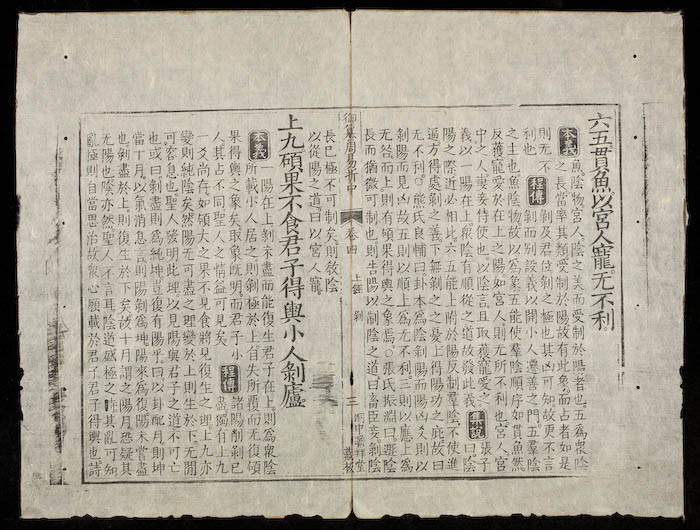 六五貫魚以宮人寵。无不利。
本義 魚陰物宮人陰之美而受制於陽者也五爲衆陰
之長當率其類受制於陽故有此象而占者如是
則无不利也 程傳 剝及君位剝之極也其凶可知故更不言
剝而別設義以開小人遷善之門五羣陰
之主也魚陰物故以爲象五能使羣陰順序如貫魚然
反獲寵愛於在上之陽如宮人則无所不利也宮人宮
中之人妻妾侍使也以陰言且取獲寵愛之
義以一陽在上衆陰有順從之道故發此義 集說 張子曰陰
陽之際近必相比六五能上附於陽反制羣陰不使進
逼方得處剝之善下無剝之之憂上得陽功之庇故曰
无不利。熊氏良輔曰卦本爲陰剝陽而陽凶爻則以
剝陽而見凶故五則以順上爲无不利三則以應上爲
无咎而上則有碩果得輿之象焉。張氏振淵曰遯陰
長而猶微可制也則告陽以制陰之道曰畜臣妾剝陰
御纂周易折中 卷四 上經 剝 三
長已極不可制矣則敎陰
以從陽之道曰以宮人寵
上九碩果不食君子得輿小人剝廬
本義 一陽在上剝未盡而能復生君子在上則爲衆陰
所載小人居之則剝極於上自失所覆而无復碩
果得輿之象矣取象旣明而君子小
人其占不同聖人之情益可見矣 程傳 諸陽消剝已
盡獨有上九
一爻尚存如碩大之果不見食將見復生之理上九亦
變則純陰矣然陽无可盡之理變於上則生於下无間
可容息也聖人發明此理以見陽與君子之道不可亡
也或曰剝盡則爲純坤豈復有陽乎曰以卦配月則坤
當十月以氣消息言則陽剝爲坤陽來爲復陽未嘗盡
也剝盡於上則復生於下矣故十月謂之陽月恐疑其
无陽也陰亦然聖人不言耳陰道盛極之時其亂可知
亂極則自當思治故衆心願載於君子君子得輿也詩